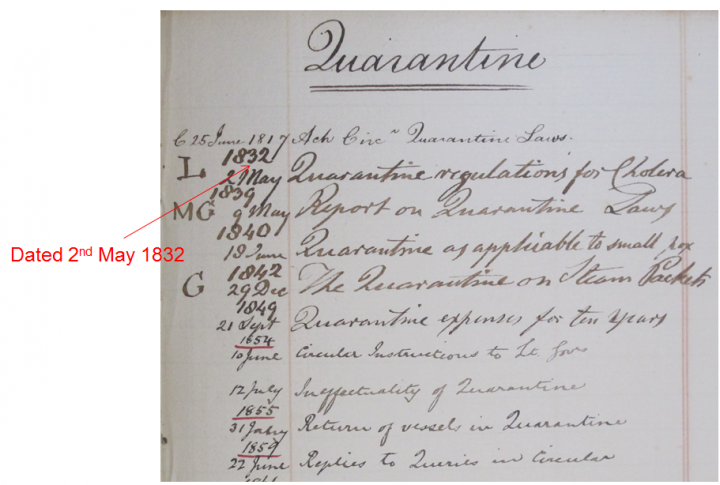 Quarantine
C 25 June 1817 Ack Circ^r Quarantine Laws.
1832
L 2 May Quarantine regulations for Cholera
1839
MG 9 May Report on Quarantine Laws
1840
18 June Quarantine as applicable to small pox
1842
G 29 Dec The Quarantine on Steam Packets
1849
21 Sept Quarantine expenses for ten years
1854
10 June Circular Instructions to Lt. Govr
12 July Ineffectuality of Quarantine
1855
31 Jabry Return of vessels in Quarantine
1859
22 June Replies to Queries in Circular
Dated 2nd May 1832